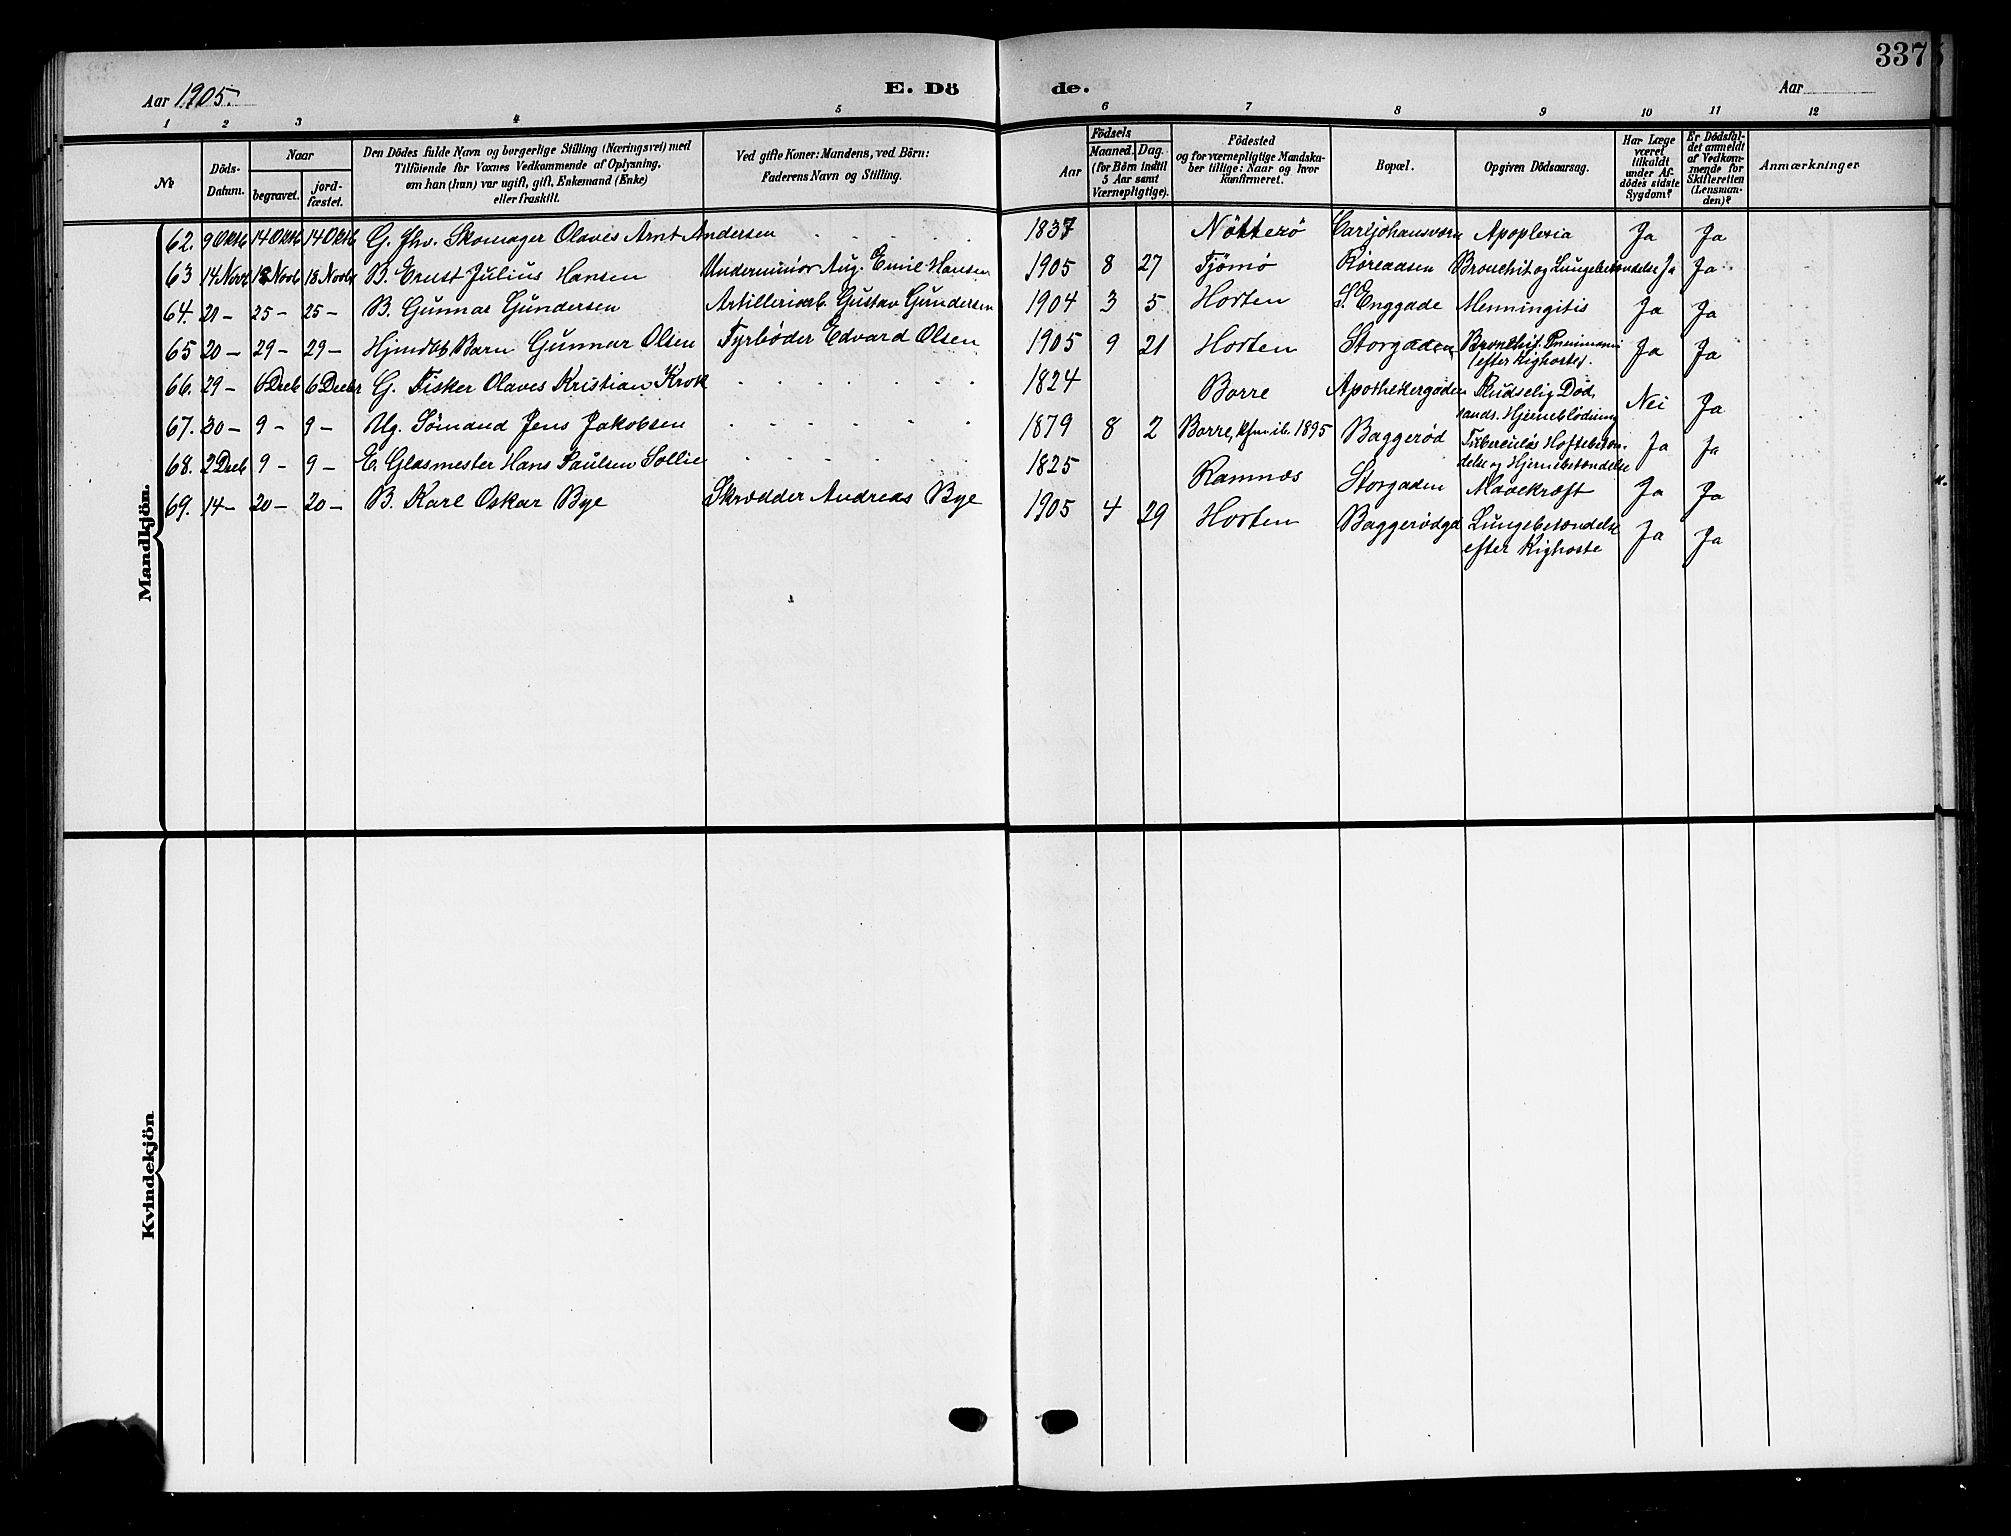 337
Aar 1905.
E. Dö de.
Aar
1 2 3 4 5 6 7 8 9 10 11 12
№
Döds-Datum.
Naar
begravet.
jordfæstet.
Den Dödes fulde Navn og borgerlige Stilling (Næringsvei) med
Tilföiende for Voxnes Vedkommende af Oplysning,
om han (hun) var ugift, gift, Enkemand (Enke)
eller fraskilt.
Ved gifte Koner: Mandens, ved Börn:
Faderens Navn og Stilling.
Födsels
Aar
Maaned. Dag.
(for Börn indtil
5 Aar samt
Værnepligtige).
Födested
og for værnepligtige Mandskaber tillige: Naar og hvor
konfirmeret.
Bopæl.
Opgiven Dödsaarsag.
Har Læge
været
tilkaldt
under Afdödes sidste
Sygdom?
Er Dödsfaldet anmeldt
af Vedkommende for
Skifteretten
(Lensmanden)?
Anmærkninger
Mandkjön.
62. 9 Oktb 14 Oktb 14 Oktb G. fhv. Skomager Olavis Arnt Andersen 1837 Nötterö Carljohansværn Apoplexia Ja Ja
63 14 Novb 18 Novb 18 Novbr B. Ernst Julius Hansen Underminör Aug. Emil Hansen 1905 8 27 Tjömö Röreaasen Bronchit og Lungebetændelse Ja Ja
64. 21 - 25 - 25 - B. Gunnar Gundersen Artilleriarb. Gustav Gundersen 1904 3 5 Horten S. Enggade Menningitis Ja Ja
65 20 - 29 - 29 - Hjemdöb Barn Gunnar Olsen Fyrbøder Edvard Olsen 1905 9 21 Horten Storgaden Bronchit. Pneumoni (efter Kighoste). Ja Ja
66. 29 - 6 Decb 6 Decbr G. Fisker Olaves Kristian Krok 1824 Borre Apothekergaden Pludselig Död, sands. Hjerneblödning Nei Ja
67. 30 - 9 - 9 - Ug. Sömand Jens Jakobsen 1879 8 2 Borre, kfm. ib. 1895 Baggerød Tuberculös Hoftebetændelse og Hjernebetændelse Ja Ja
68. 2 Decb 9 - 9 - E. Glasmester Hans Paulsen Sollie 1825 Ramnæs Storgaden Mavekræft Ja Ja
69. 14 - 20 - 20 - B. Karl Oskar Bye Skrædder Andreas Bye 1905 4 29 Horten Baggerødgd Lungebetændelse efter Kighoste Ja Ja
Kvindekjön